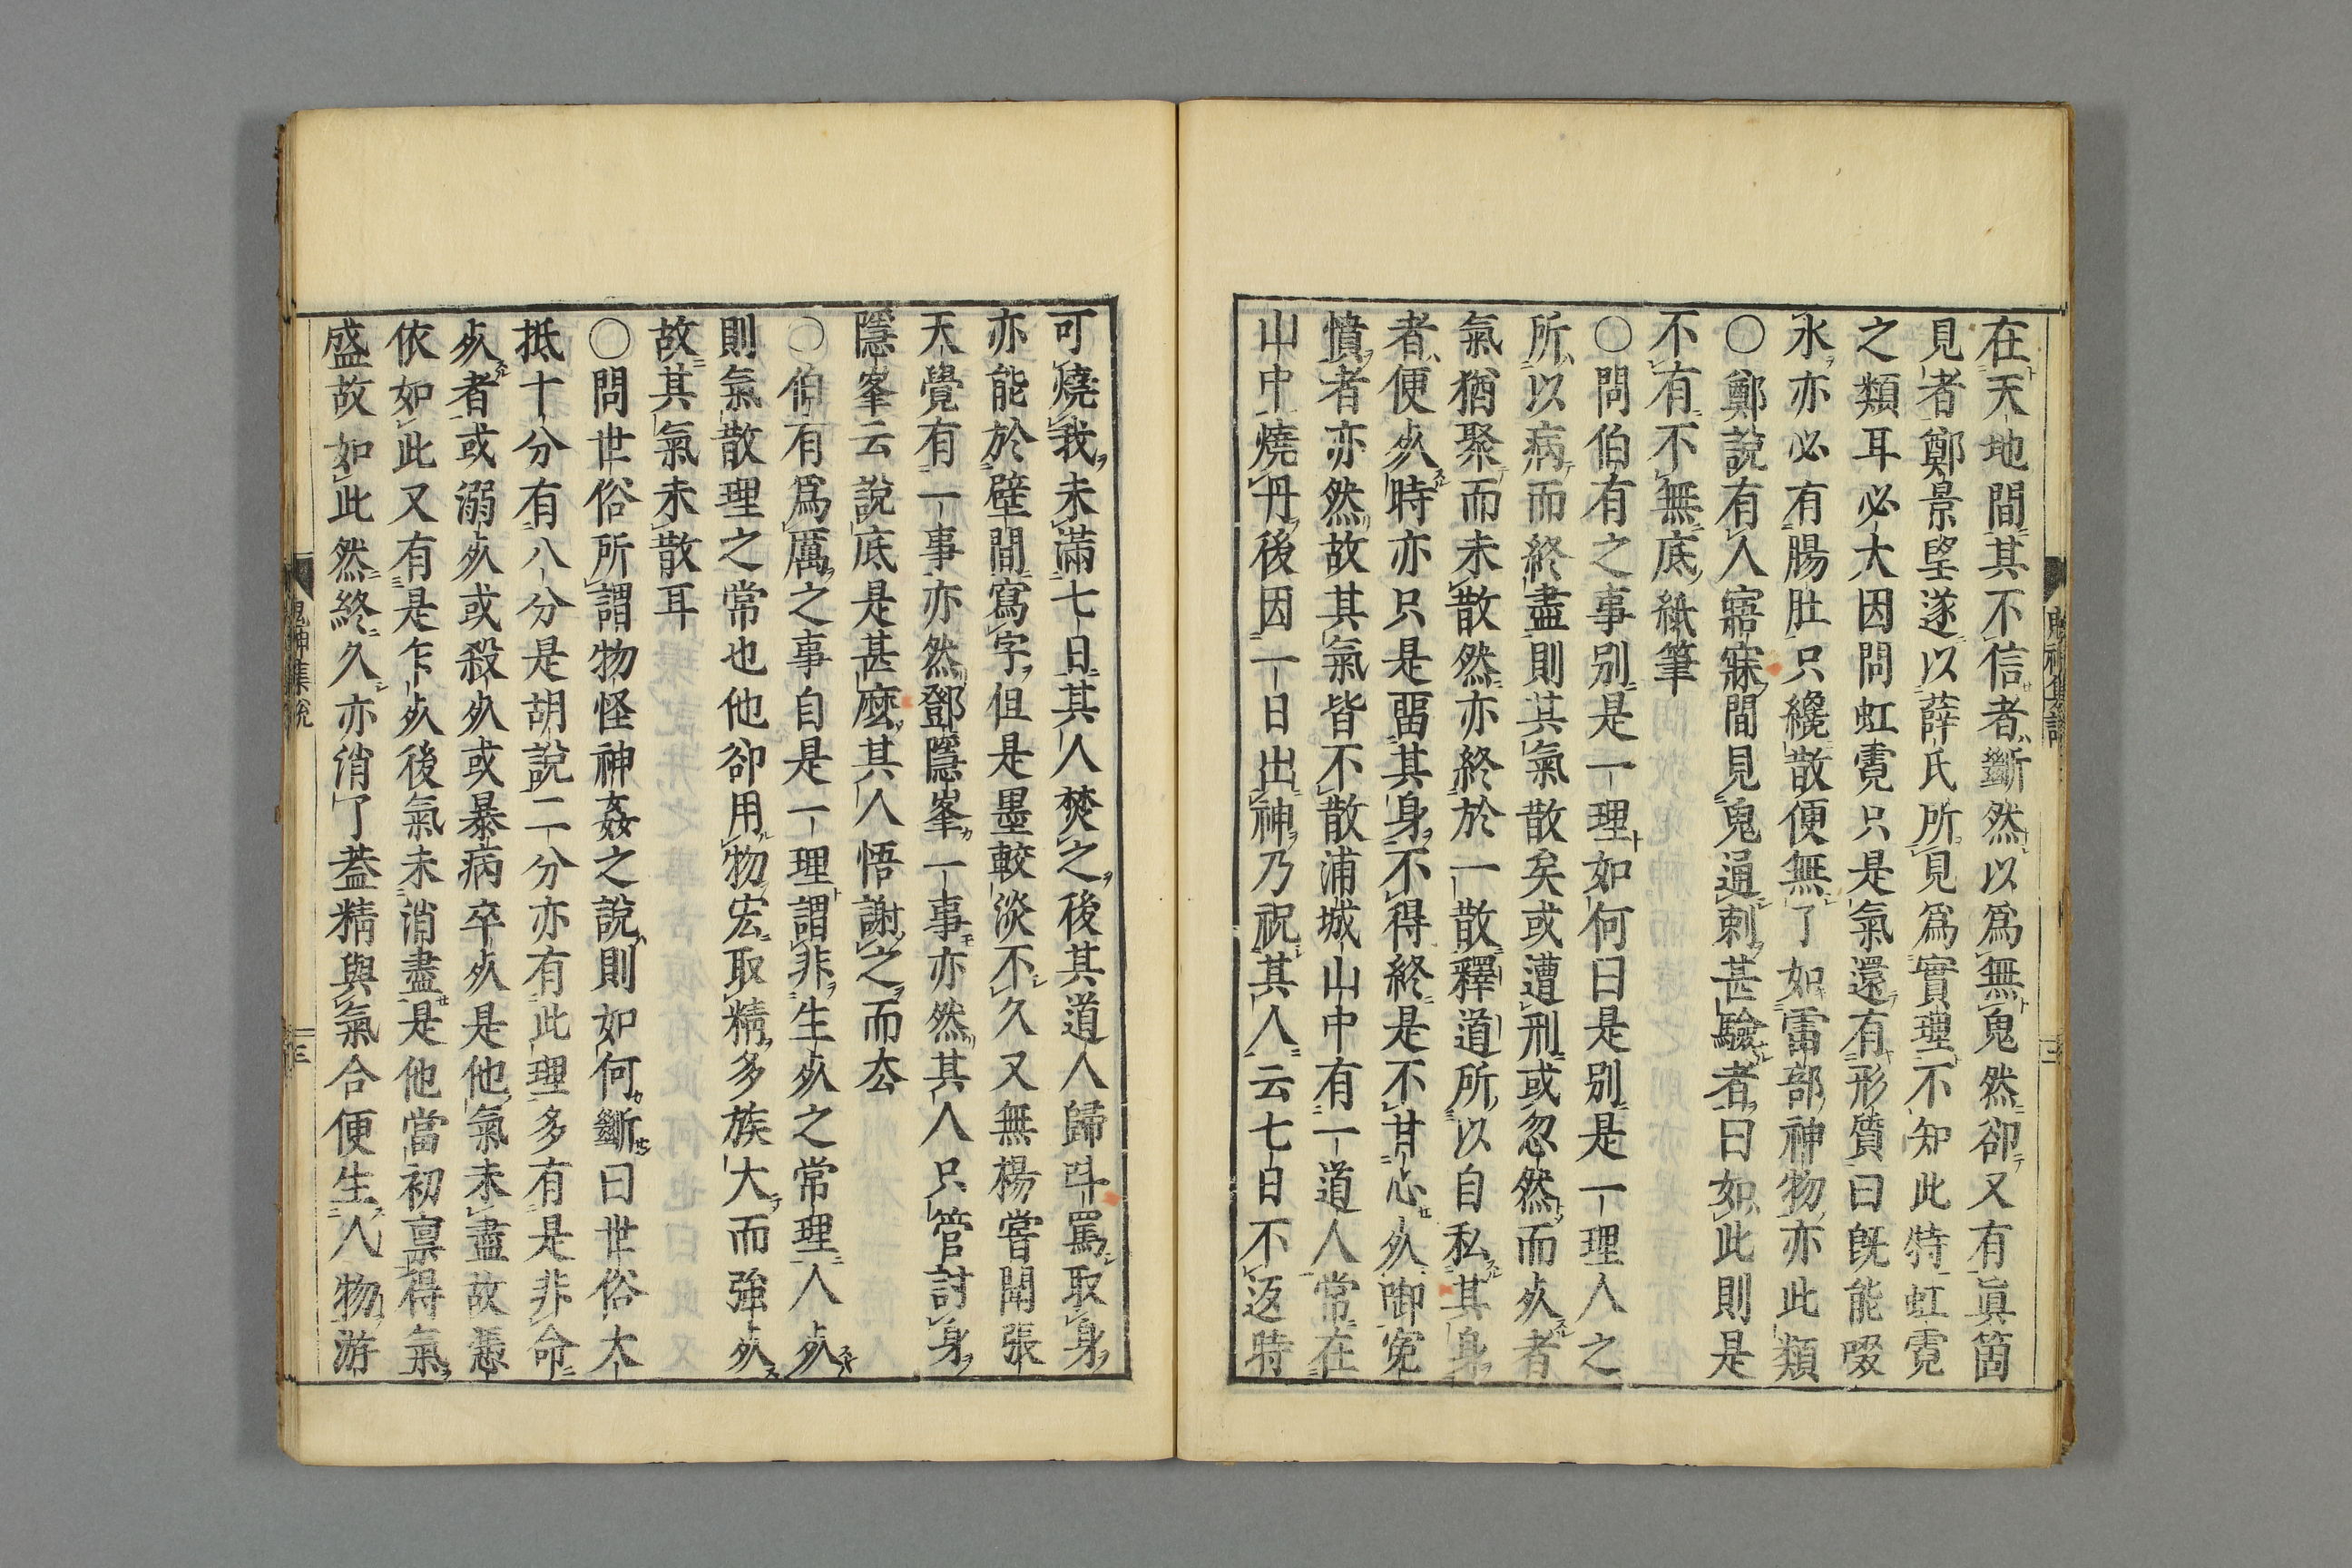 在天地間其不信者斷然以爲無鬼然卻又有眞箇
見者鄭景望遂以薛氏所見爲實理不知此特虹霓
之類耳必大因問虹霓只是氣還有形質曰旣能啜
水亦必有腸肚只纔散便無了如雷部神物亦此類
〇鄭說有人寤寐間見鬼通刺甚驗者曰如此則是
不有不無底紙筆
〇問伯有之事別是一理如何曰是別是一理人之
所以病而終盡則其氣散矣或遭刑或忽然而㱔者
氣猶聚而未散然亦終於一散釋道所以自私其身
者便㱔時亦只是畱其身不得終是不甘心㱔啣寃
憤者亦然故其氣皆不散浦城山中有一道人常在
山中燒丹後因一日出神乃祝其人云七日不返時
可燒我未滿七日其人焚之後其道人歸叫罵取身
亦能於壁間寫字但是墨較淡不久又無楊嘗聞張
天覺有一事亦然鄧隱峯一事亦然其人只管討身
隱峯云說底是甚麼其人悟謝之而厺
〇伯有爲厲之事自是一理謂非生㱔之常理人㱔
則氣散理之常也他卻用物宏取精多族大而強㱔
故其氣未散耳
〇問世俗所謂物怪神姦之說則如何斷曰世俗大
抵十分有八分是胡說二分亦有此理多有是非命
㱔者或溺㱔或殺㱔或暴病卒㱔是他氣未盡故憑
依如此又有是乍㱔後氣未消盡是他當初稟得氣
盛故如此然終久亦消了葢精與氣合便生人物游
鬼神集說
三